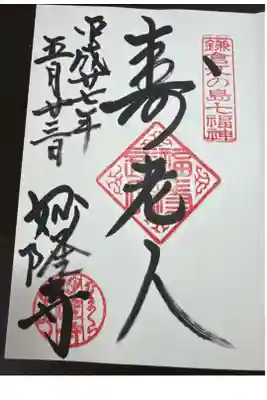 鎌倉江の島七福神
寿老人
平成廿七年
五月廿三日
妙隆寺